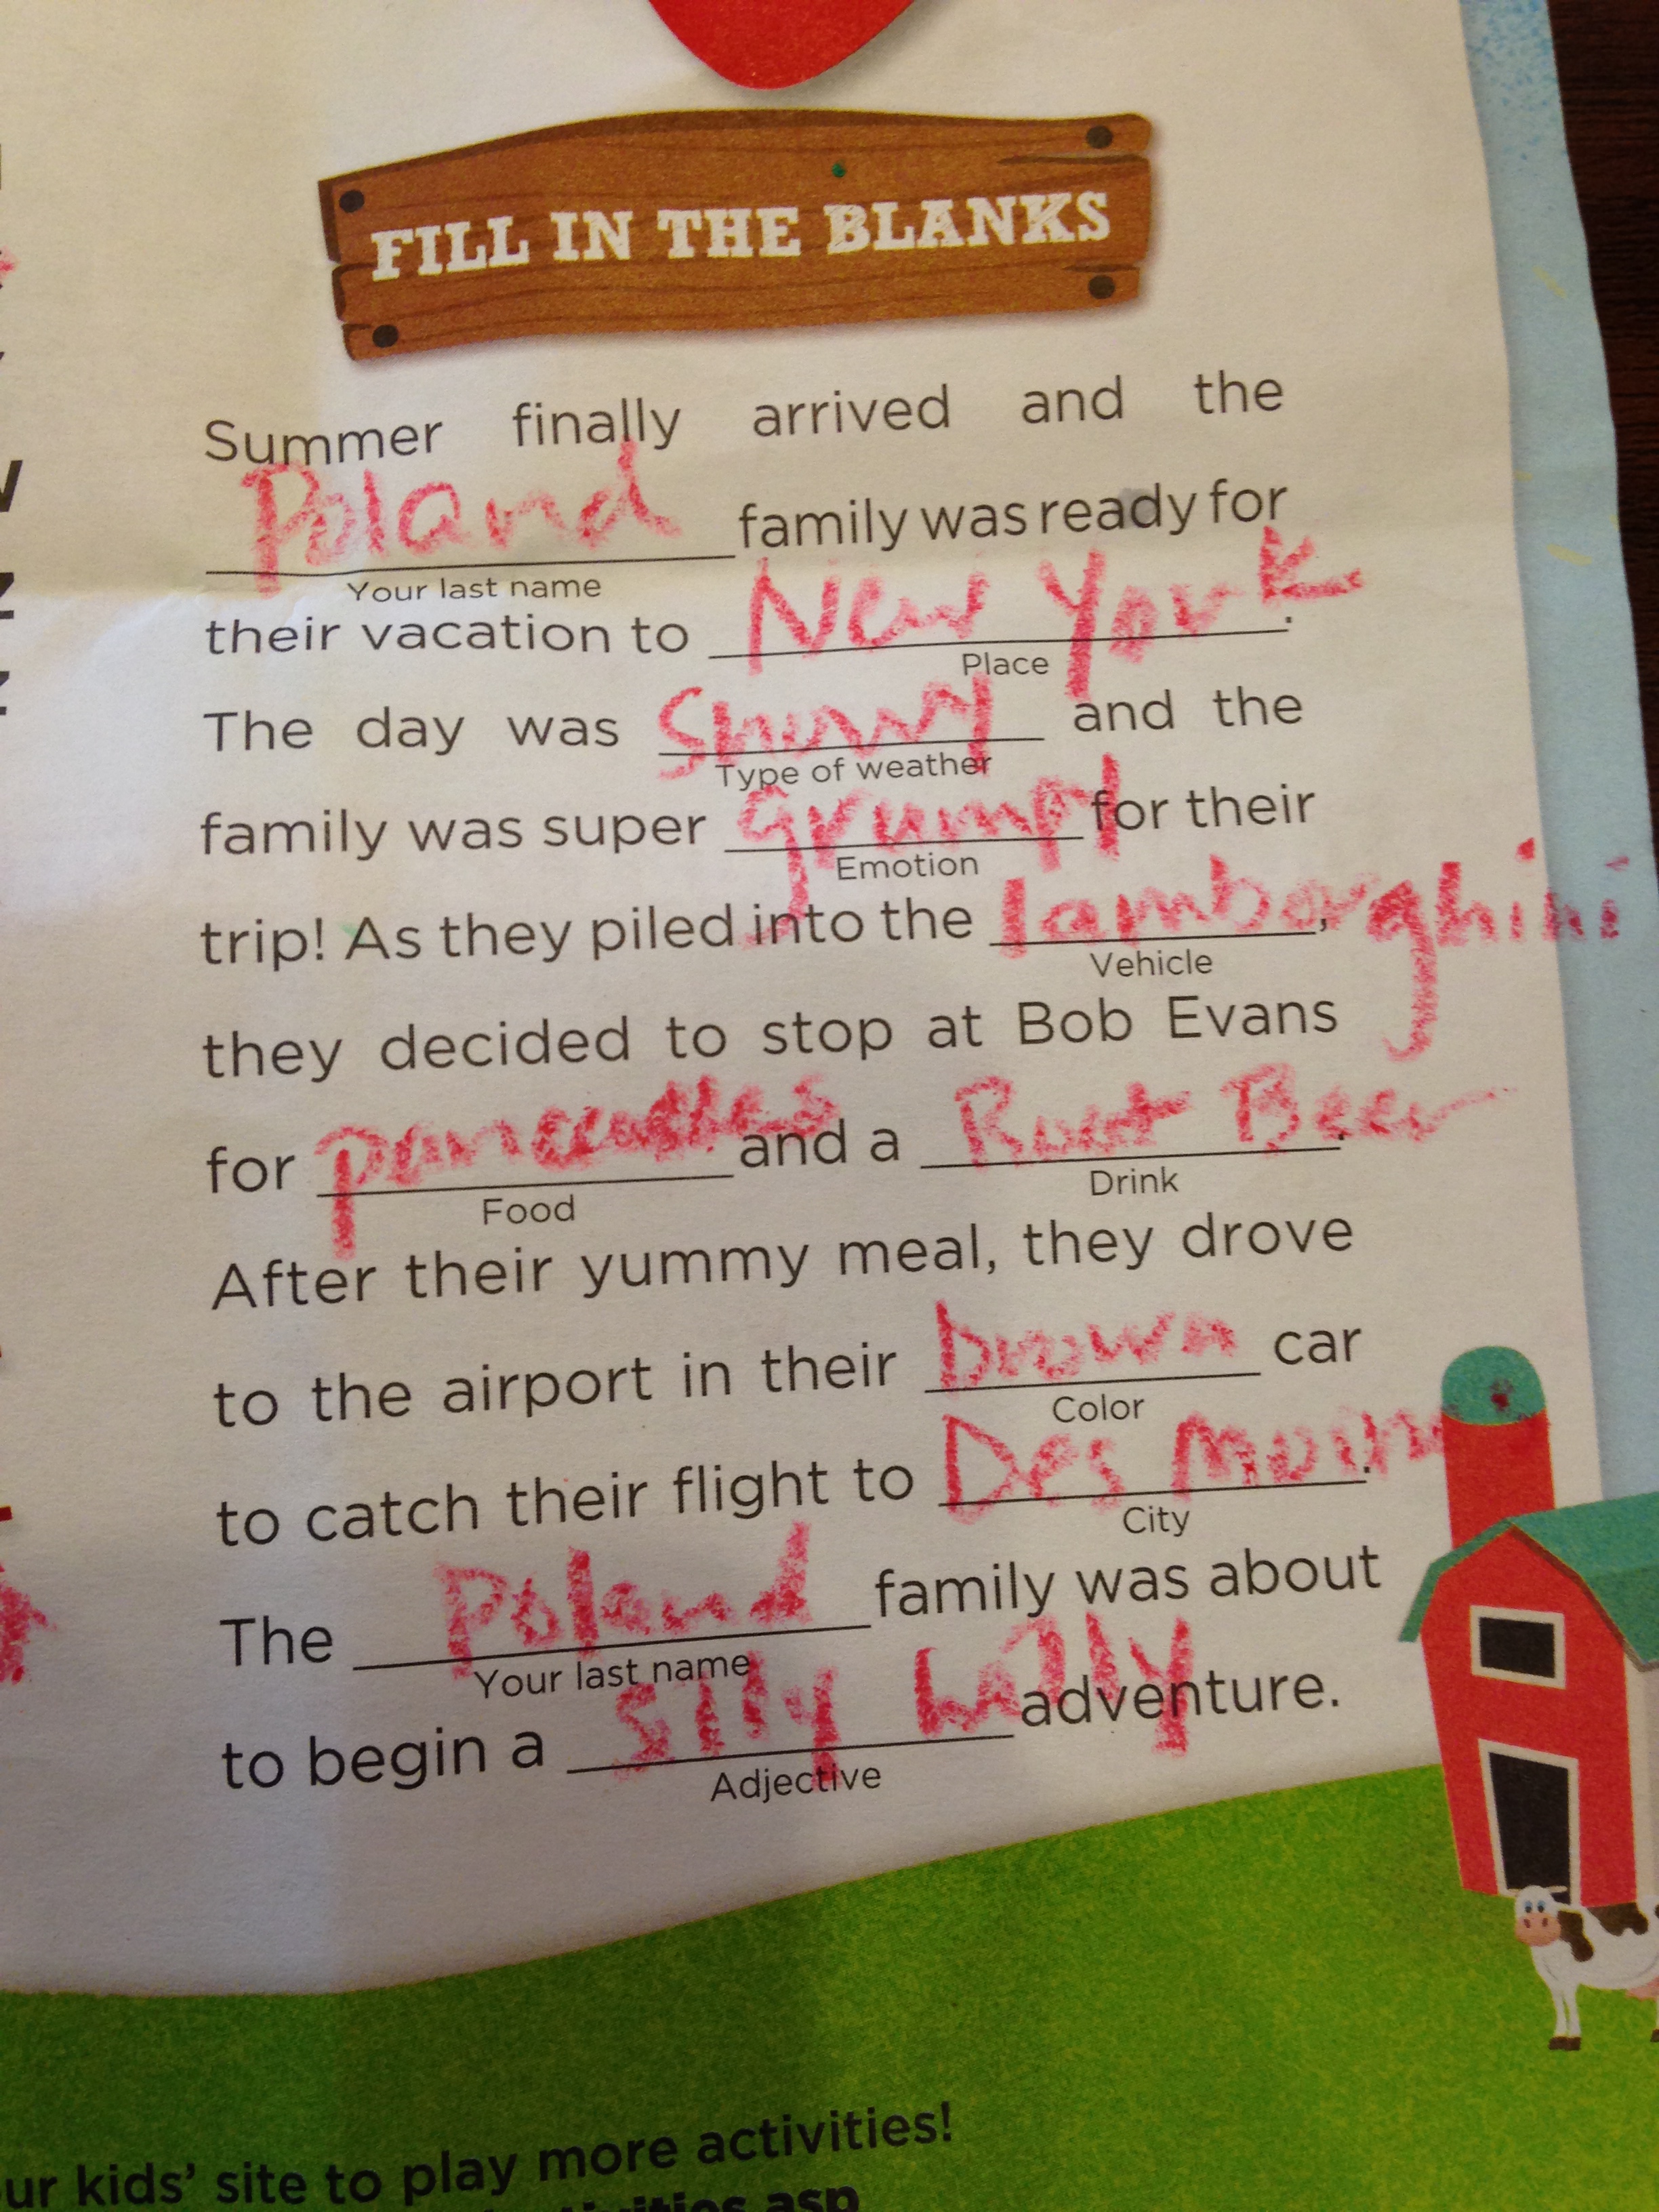 FILL IN THE BLANKS
Summer finally arrived and the
Poland family was ready for
Your last name
their vacation to New York.
Place
The day was Snowy and the
Type of weather
family was super grumpy for their
Emotion
trip! As they piled into the lamborghini,
Vehicle
they decided to stop at Bob Evans
for pancakes and a Root Beer.
Food Drink
After their yummy meal, they drove
to the airport in their brown car
Color
to catch their flight to Des Moin.
City
The Poland family was about
Your last name
to begin a silly willy adventure.
Adjective
ur kids' site to play more activities!